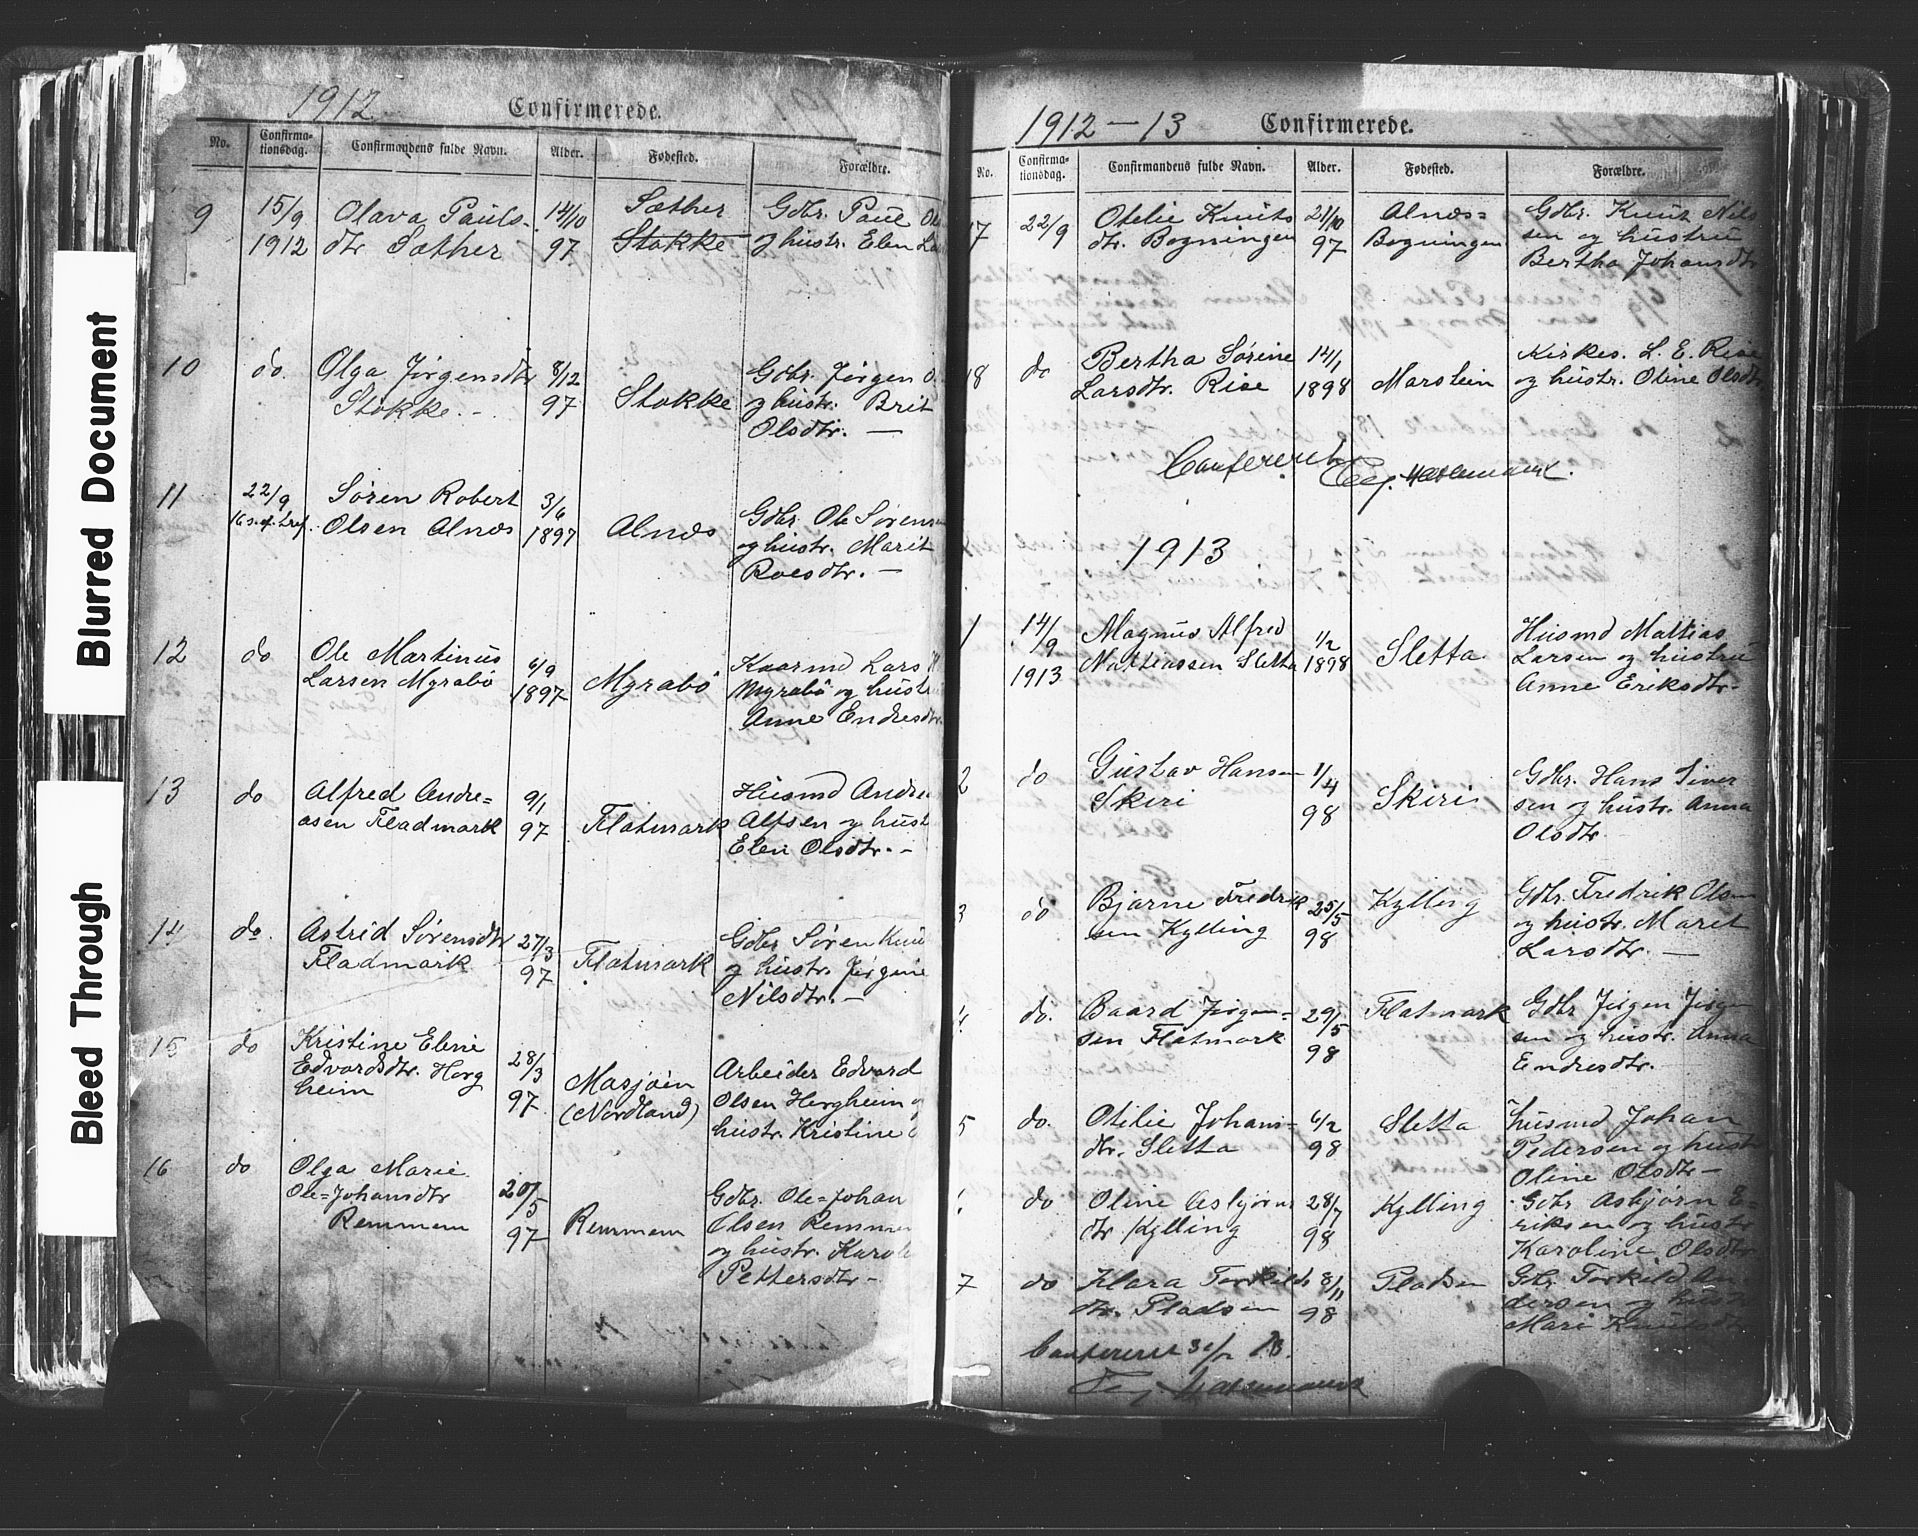 Blurred Document
Bleed Through
1912 Confirmerede.
No. Confirma-tionsdag. Confirmandens fulde Navn. Alder. Fødested. Forældre.
9 15/9 Olava Pauls- 14/10 Sæther Gdbr. Paul
1912 dtr Sæther 97 Stokke og hustr. Elen
10 do. Olga Jørgensdtr 8/12 Gdbr. Jørgen
Stokke. - 97 Stokke og hustr. Brit
Olsdtr. —
11 22/9 Søren Robert 3/6 Gdbr. Ole Sørensen
16 s. ef. tref. Olsen Alnæs 1897 Alnæs og hustr. Marit
Roesdtr. —
12 do Ole Martinus 6/9 Kaarmd Lars
Larsen Myrabö 1897 Myrabö Myrabö og hustr
Anne Endresdtr
13 do Alfred Andre= 9/1 Husmd Andre
asen Fladmark 97 Flatmark Alfsen og hust
Elen Olsdtr. -
14 do. Astrid Sørensdtr 27/3 Gdbr Søren
Fladmark 97 Flatmark og hustr. Jørgine
Nilsdtr. —
15 do Kristine Elene 28/3 Arbeider Edvard
Edvardsdtr. Horg 97 Masjöin Olsen Horgheim
heim (Nordland) hustr. Kristine
16 do Olga Marie 20/5 Gdbr. Ole=Johan
Ole=Johansdtr 97 Remmem Olsen Remmem
Remmem og hustr. Karol
Pettersdtr -
1912 — 13 Confirmerede.
No. Confirma-tionsdag. Confirmandens fulde Navn. Alder. Fødested. Forældre.
17 22/9 Otelie Knuts 21/10 Alnæs= Gdbr. Knut Nils
dtr. Bogningen 97 Bogningen sen og hustru
Bertha Johansdtr
18 do Bertha Sørine 14/1 Kirkes. L. E. Rise
Larsdtr. Rise 1898 Marstein og hustr. Oline Olsdtr
Confereret
1913
1 14/9 Magnus Alfred 1/2 Husmd Mattias
1913 Mattiassen Sletta 1898 Sletta Larsen og hustru
Anne Eriksdtr-
2 do Gustav Hansen 1/4 Gdbr. Hans Siver
Skiri 98 Skiri sen og hustr. Anna
Olsdtr
3 do Bjarne Fredrik 25/5 Kylling Gdbr. Fredrik Olsen
sen Kylling 98 og hustr. Marit
Larsdtr. —
4 do. Baard Jørgen= 29/5 Flatmark Gdbr Jørgen Jørgen
sen Flatmark 98 sen og hustr. Anna
Endresdtr.
5 do. Otilie Johans= 6/2 Sletta husmd Johan
dtr. Sletta 98 Pedersen og hustr
Oline Olsdtr —
do Oline Asbjørns 28/7 Kylling Gdbr Asbjørn E=
dtr Kylling 98 riksen og hustr
Karoline Olsdtr
7 do Klara Torkilds 8/11 Pladsen Gdbr Torkild An
dtr. Pladsen 98 dersen og hustr
Mari Knutsdtr
Confereret